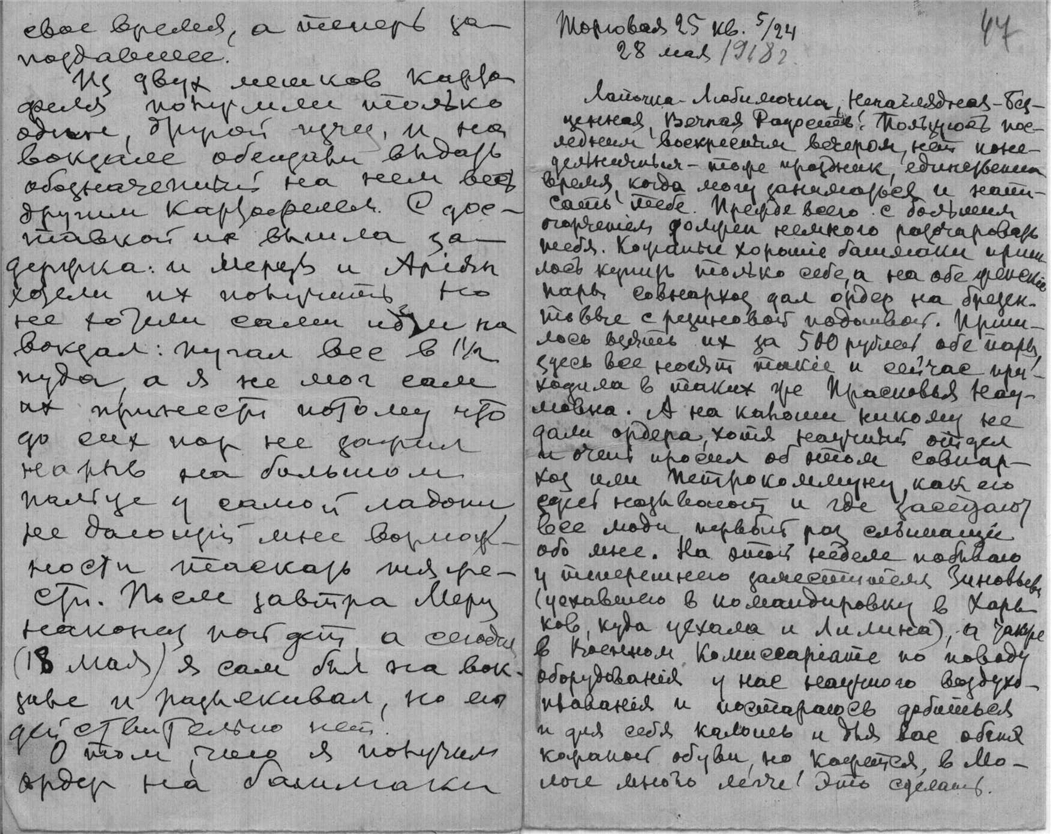 свое время, а теперь за-
поздавшее!
Из двух мешков карто-
феля получили только
один, другой исчез, и на
вокзале обещали выдать
обозначенный на нем вес
другим картофелем. С дос-
тавкой их вышла за-
держка: и Мерцъ и Аріянъ
хотели их получить но
не хотели сами идти на
вокзал: пугал вес в 11½
пуда, а я не мог сам
их принести потому что
до сих пор не зажил
нарыв на большом
пальце у самой ладони
не дающій мне возмож-
ности таскать тяже-
сти. После завтра Мерц
наконец пойдет а сегодня
(18 мая) я сам был на вок-
зале и разыскивал, но его
действительно нет!
О том, что я получил
ордер на башмаки
47
Торговая 25 кв. 5/24
28 мая 1918 г.
Лапочка-Любимочка, Ненаглядная-Без-
ценная, Вечная Радость! Пользуюсь пос-
ледним воскресным вечером, нет поне-
дельничным - тоже праздник, единственным
время, когда могу заниматься и напи-
сать тебе. Прежде всего с большим
огорчением должен немного разочаровать
тебя. Кожаные хорошие башмаки приш-
лось купить только себе, а на обе женскія
пары совнархоз дал ордер на брезен-
товые с резиновой подошвой. Приш-
лось взять их за 500 рублей обе пары
здесь все носят такіе и сейчас при-
ходила в таких же Прасковья Нау-
мовна. А на калоши никому не
дали ордера, хотя научный отдел
и очень просил об этом совнар-
хоз или Петрокоммуну, как его
здесь называют и где заседают
все люди первый раз слышащіе
обо мне. На этой неделе побываю
у теперешнего заместителя Зиновьева
(уехавшего в командировку в Харь-
ков, куда уехала и Лилина), а также
в Военном Комиссаріате по поводу
оборудованія у нас научного воздухо-
плаванія и постараюсь добиться
и для себя калош и для вас обеих
кожаной обуви, но кажется, в Мо-
логе много легче! Это сделать.